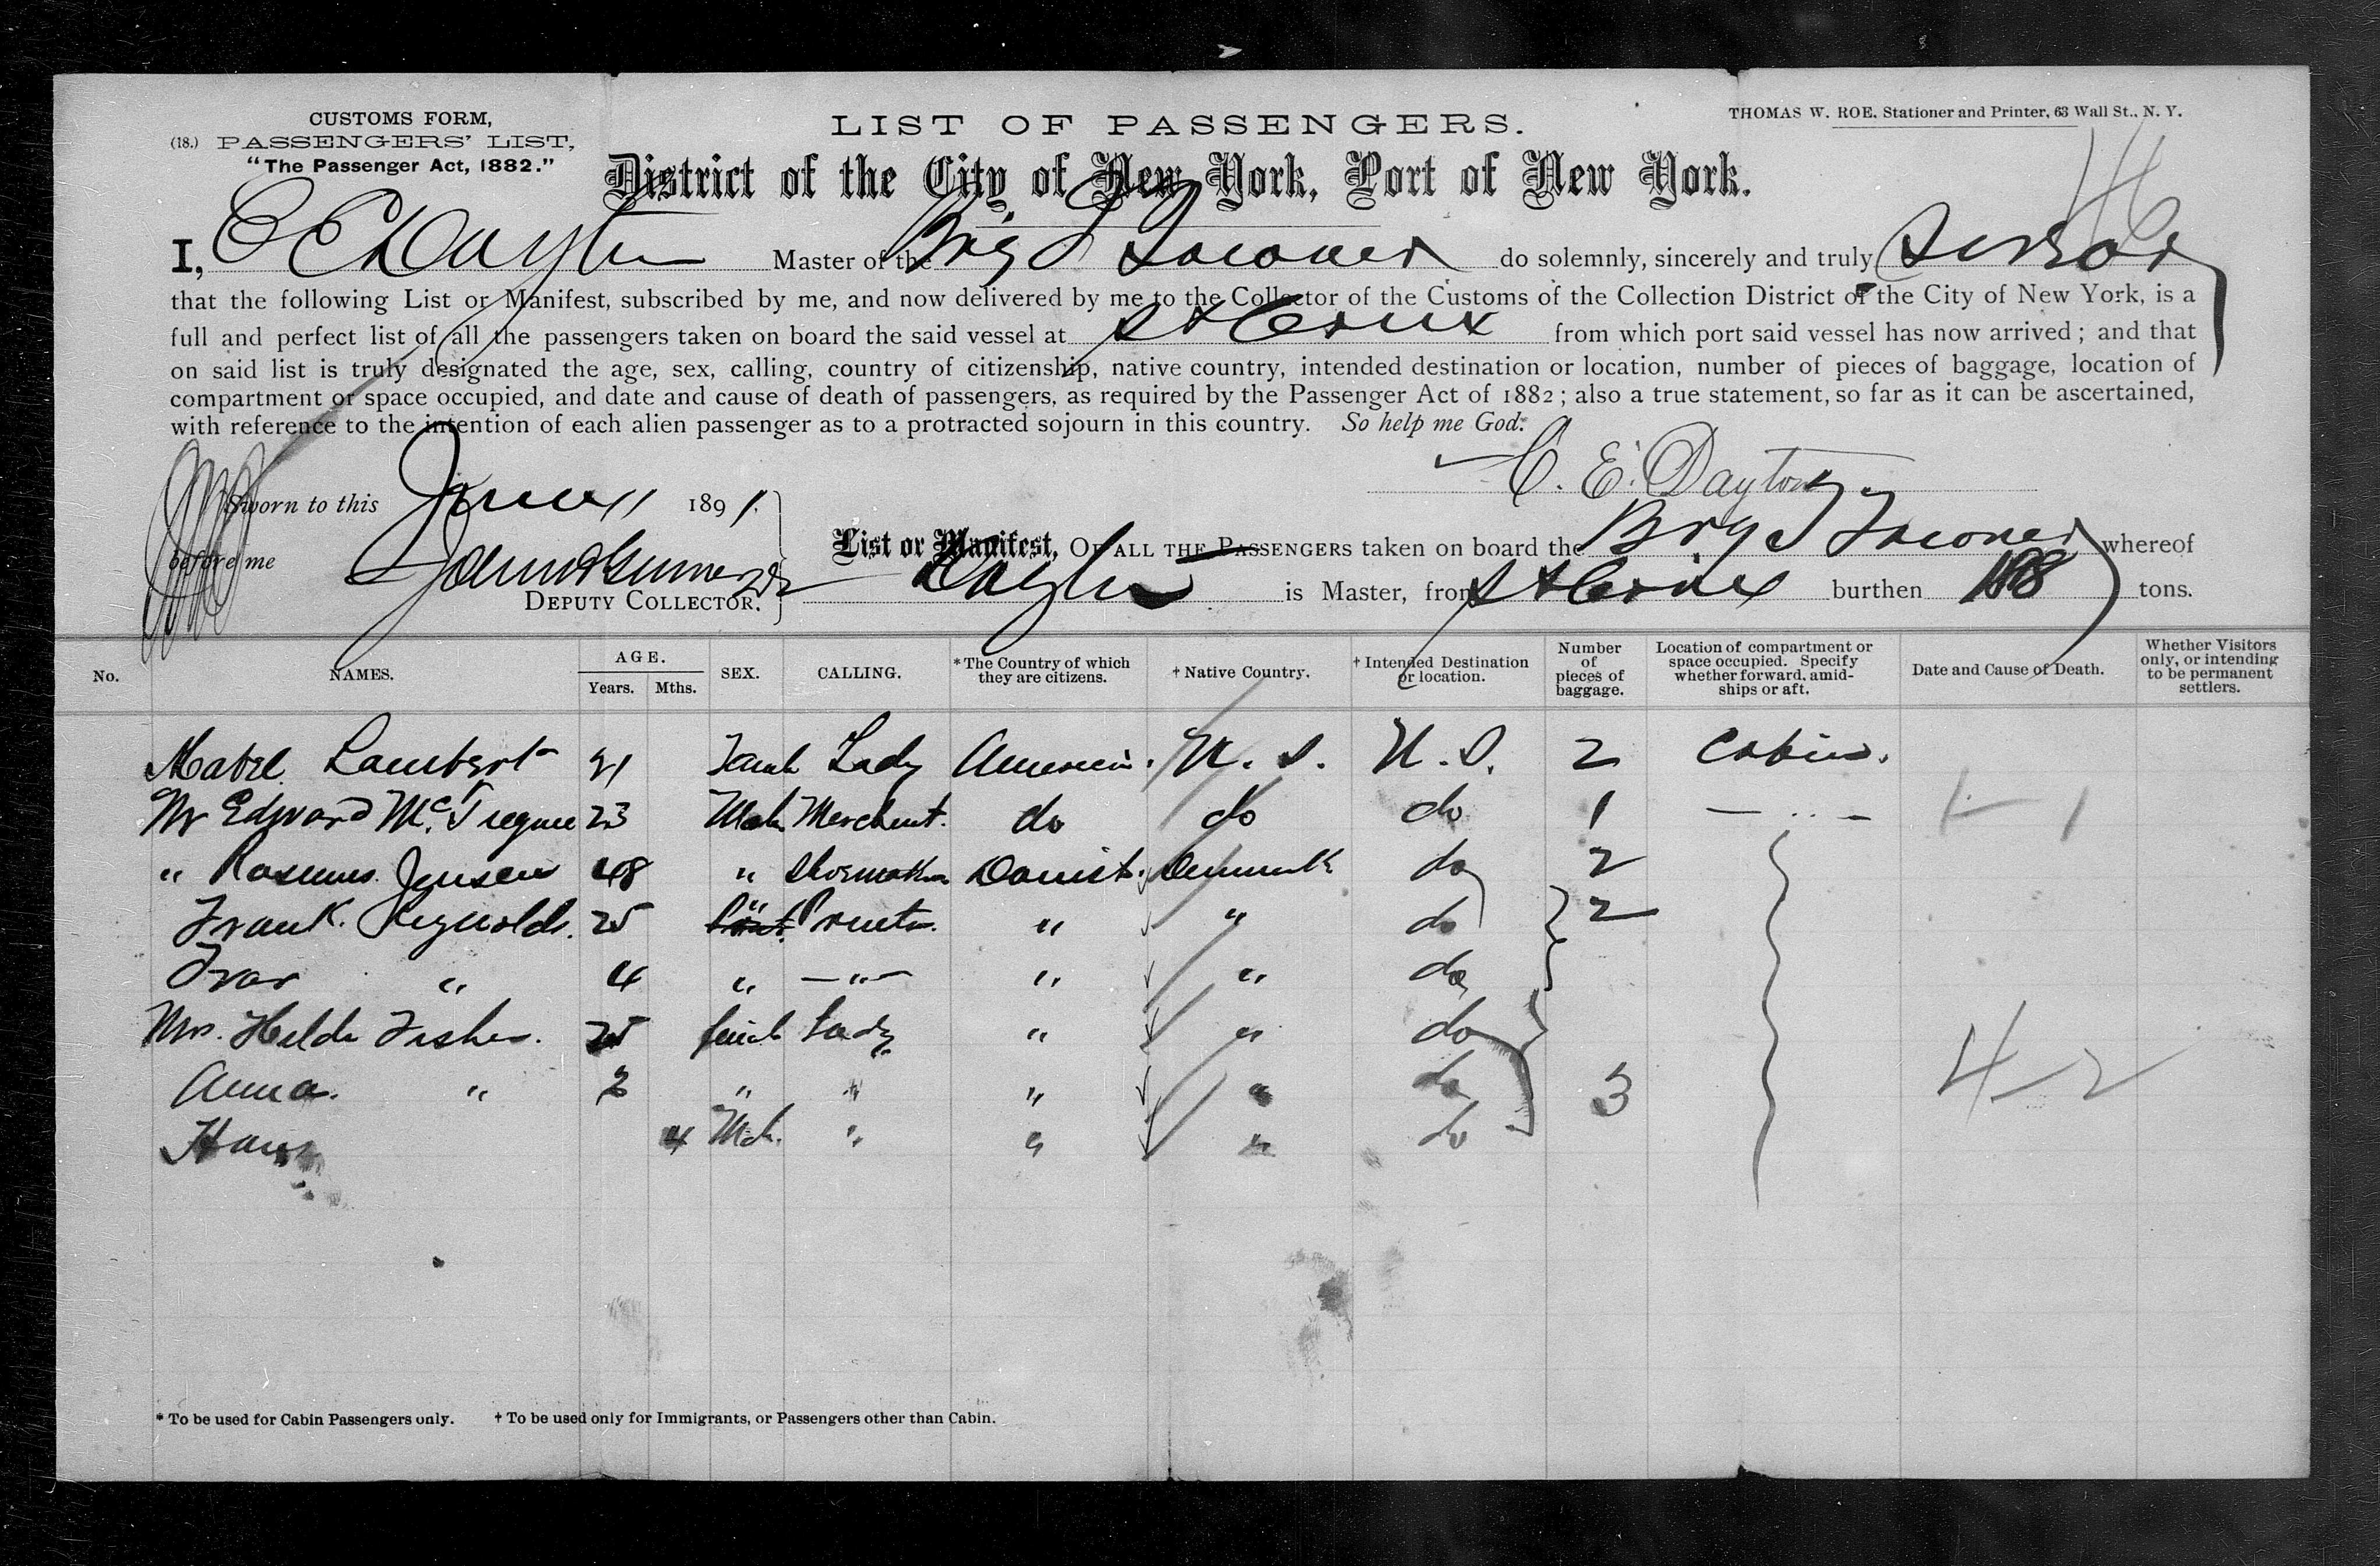 CUSTOMS FORM,
(18.) PASSENGERS' LIST,
"The Passenger Act, 1882."
LIST OF PASSENGERS.
THOMAS W. ROE, Stationer and Printer, 63 Wall St., N. Y.
District of the City of New York, Port of New York.
I, C E Dayton Master of the Brig do solemnly, sincerely and truly swear
that the following List or Manifest, subscribed by me, and now delivered by me to the Collector of the Customs of the Collection District of the City of New York, is a
full and perfect list of all the passengers taken on board the said vessel at St Croix from which port said vessel has now arrived; and that
on said list is truly designated the age, sex, calling, country of citizenship, native country, intended destination or location, number of pieces of baggage, location of
compartment or space occupied, and date and cause of death of passengers, as required by the Passenger Act of 1882; also a true statement, so far as it can be ascertained,
with reference to the intention of each alien passenger as to a protracted sojourn in this country. So help me God.
C. E. Dayton
Sworn to this June 11 1891.
before me
DEPUTY COLLECTOR.
List or Manifest, OF ALL THE PASSENGERS taken on board the Brig whereof
Dayton is Master, from St Croix burthen 188 tons.
No. NAMES. AGE. Years. Mths. SEX. CALLING. *The Country of which they are citizens. † Native Country. † Intended Destination or location. Number of pieces of baggage. Location of compartment or space occupied. Specify whether forward, amidships or aft. Date and Cause of Death. Whether Visitors only, or intending to be permanent settlers.
Mabel Lambert 21 Lady American. U. S. U. S. 2 Cabin.
Mr Edward 23 Male Merchant. do do do 1 — „ —
" Rasmus Jensen 48 " Shoemaker Danish. Denmark do 2
Frank. Reynolds. 25 " " " do 2
Ivar " 4 " — " — " " do
Mrs. Hilda Fisher. 25 Lady " " do
Anna. " 2 " " " " do 3
Hans 4 Male. " " " do
* To be used for Cabin Passengers only. † To be used only for Immigrants, or Passengers other than Cabin.